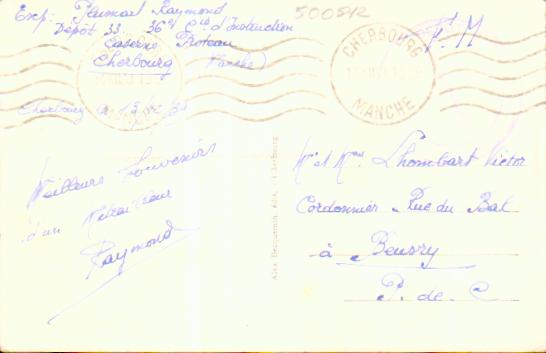 Exp: Plumart Raymond
Dépôt 33. 36e Cie d'Instruction
Caserne Proteau
Cherbourg (Manche)
500512
CHERBOURG
MANCHE
F. M
Cherbourg le 13
Meilleurs Souvenirs
d'un Mitrailleur
Raymond
Alex. Becquemin, édit., Cherbourg
Mr et Mme Lhombart Victor
Cordonnier Rue du Bal
à Beuvry
P. de C